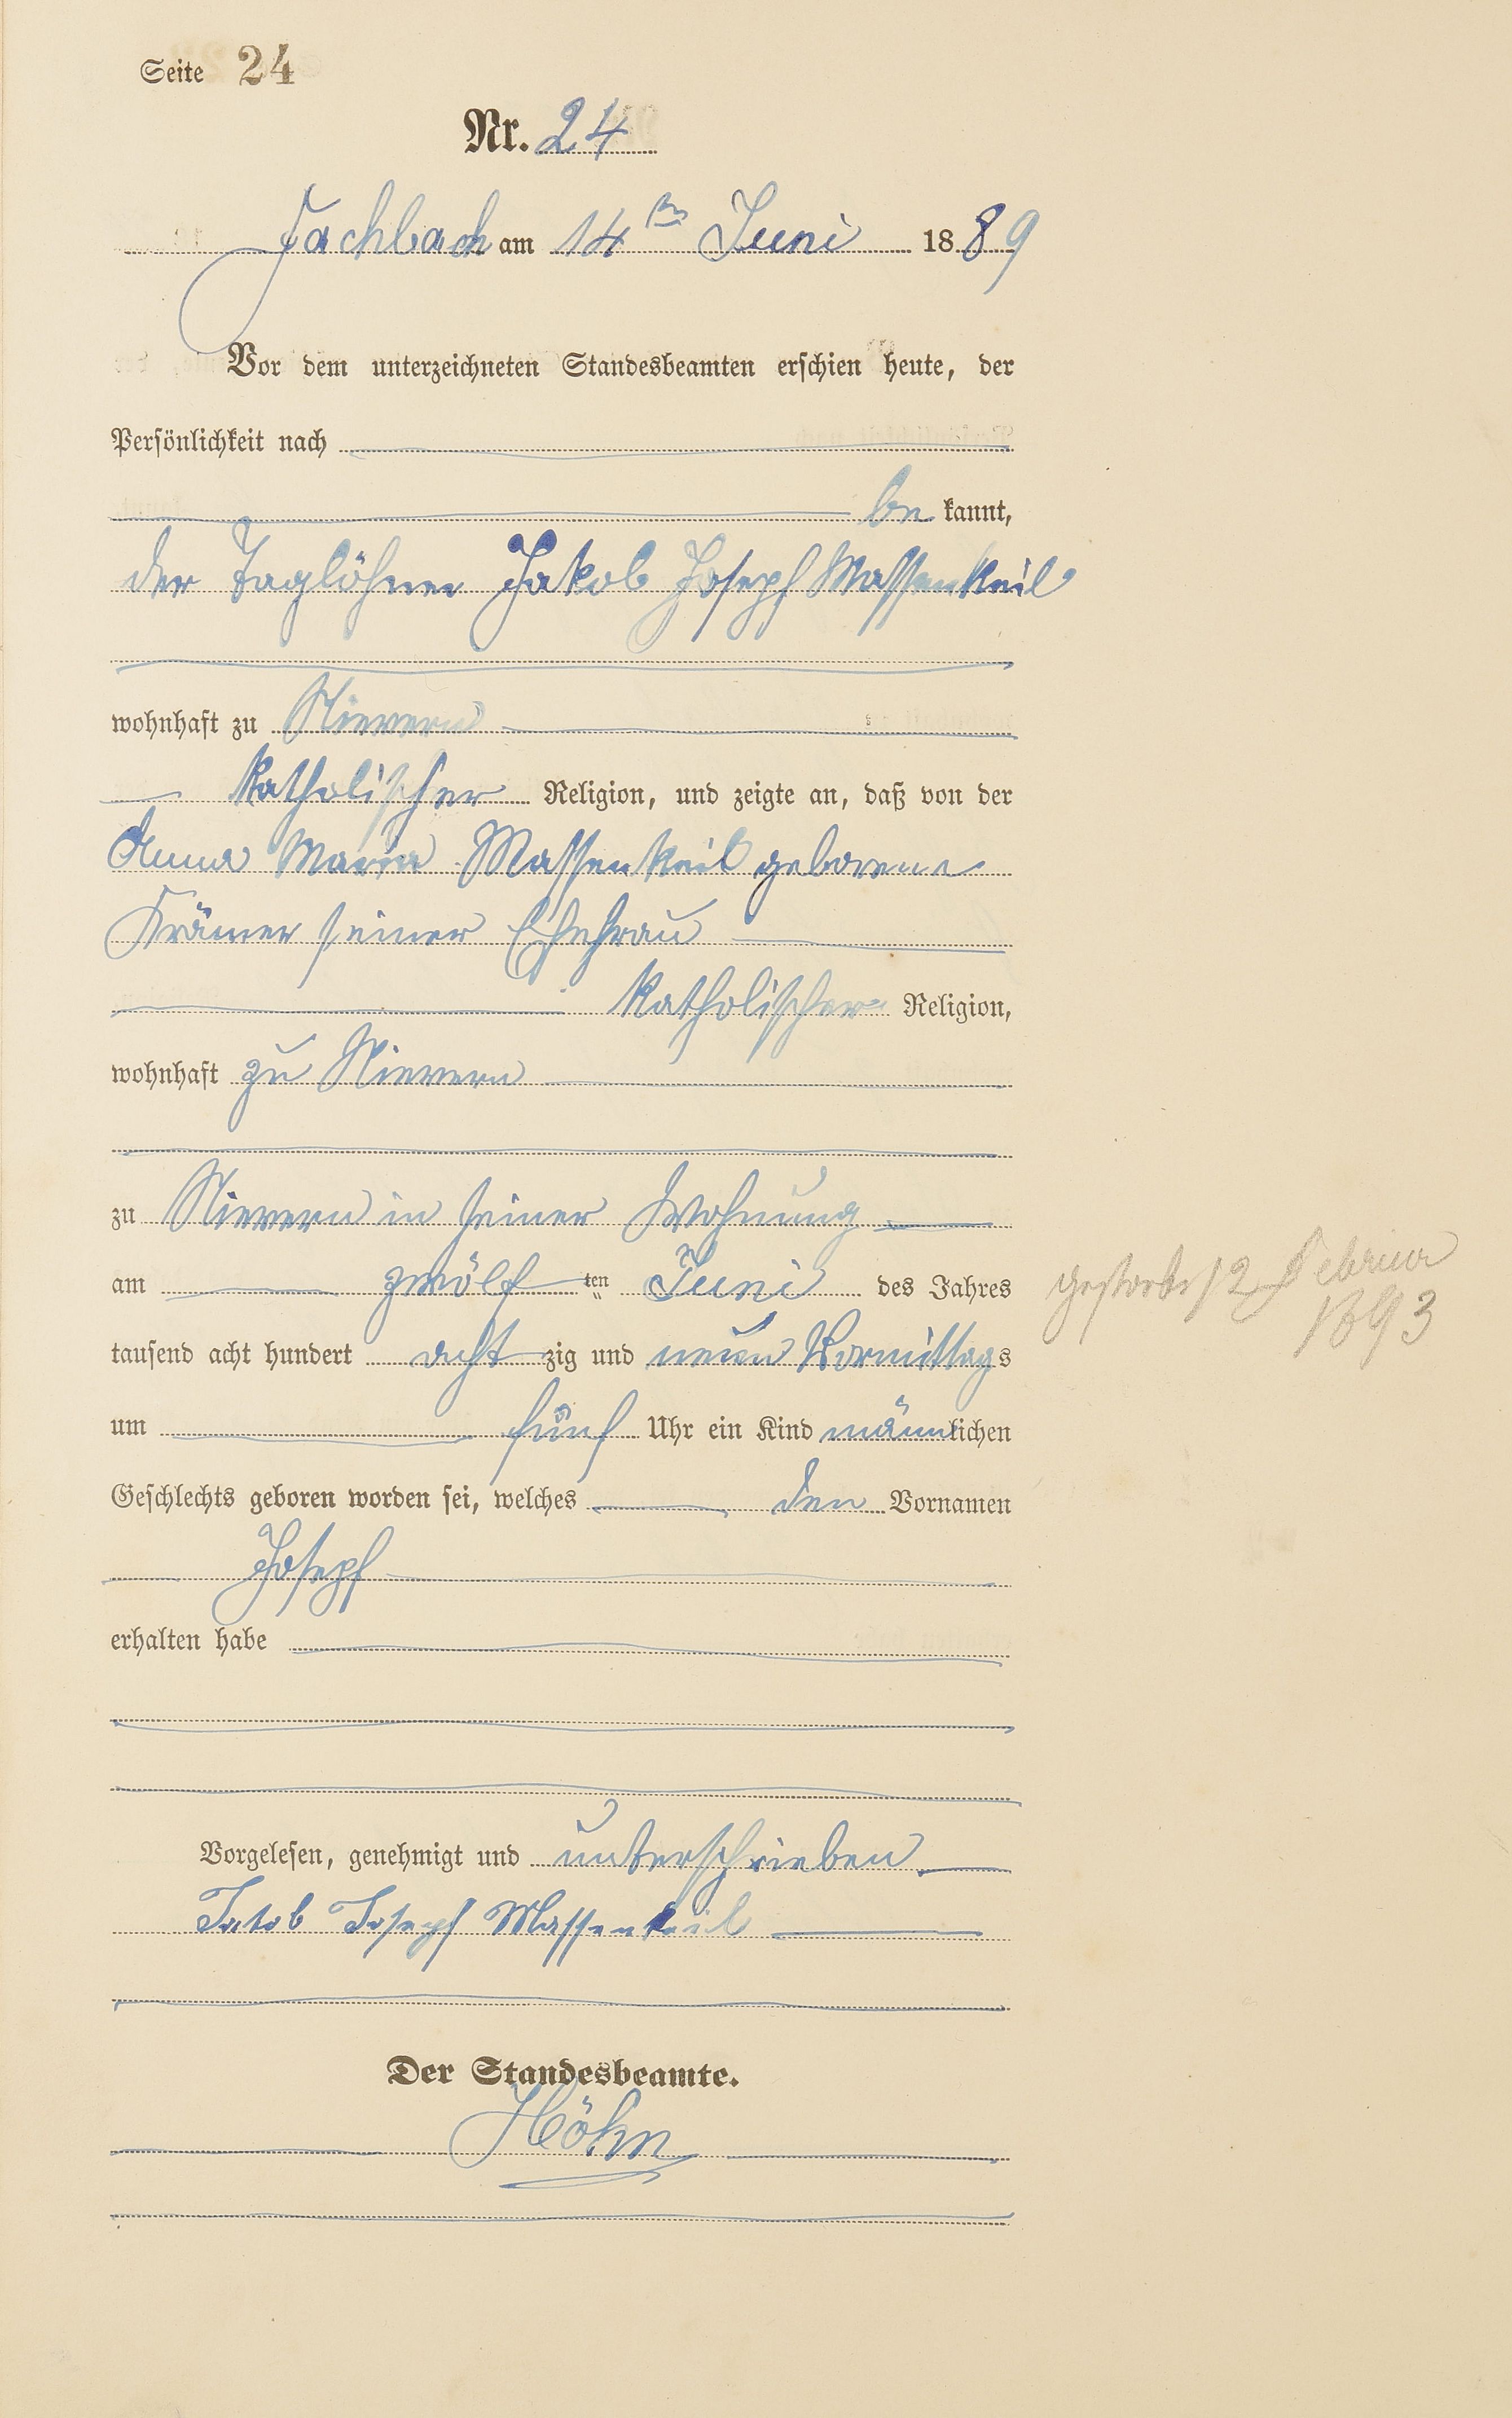 Seite 24
Nr. 24
Fachbach am 14ten Juni 1889
Vor dem unterzeichneten Standesbeamten erschien heute, der
Persönlichkeit nach
be kannt,
der Taglöhner Jakob Joseph Massenkeil
wohnhaft zu Nievern
katholischer Religion, und zeigte an, daß von der
Anna Maria Massenkeil geborene
Krämer seiner Ehefrau
katholischer Religion,
wohnhaft zu Nievern
zu Nievern in seiner Wohnung
am zwölf ten Juni des Jahres
gestorben 12 Februar
1893
tausend acht hundert acht zig und neun Vormittags
um fünf Uhr ein Kind männlichen
Geschlechts geboren worden sei, welches den Vornamen
Joseph
erhalten habe
Vorgelesen, genehmigt und unterschrieben
Jakob Joseph Massenkeil
Der Standesbeamte.
Höhn